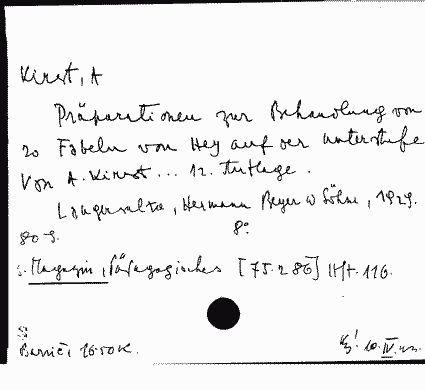 Kirst, A
Präparationen zur Behandlung von
20 Fabeln von Hey auf der Unterstufe
Von A. Kirst... 12. Auflage.
Langensalza, Hermann Beyer u Söhne, 1929.
80 S. 8°
s. Magazin, Pädagogisches [75.286] Hft. 116.
Barnič, 16.50K.